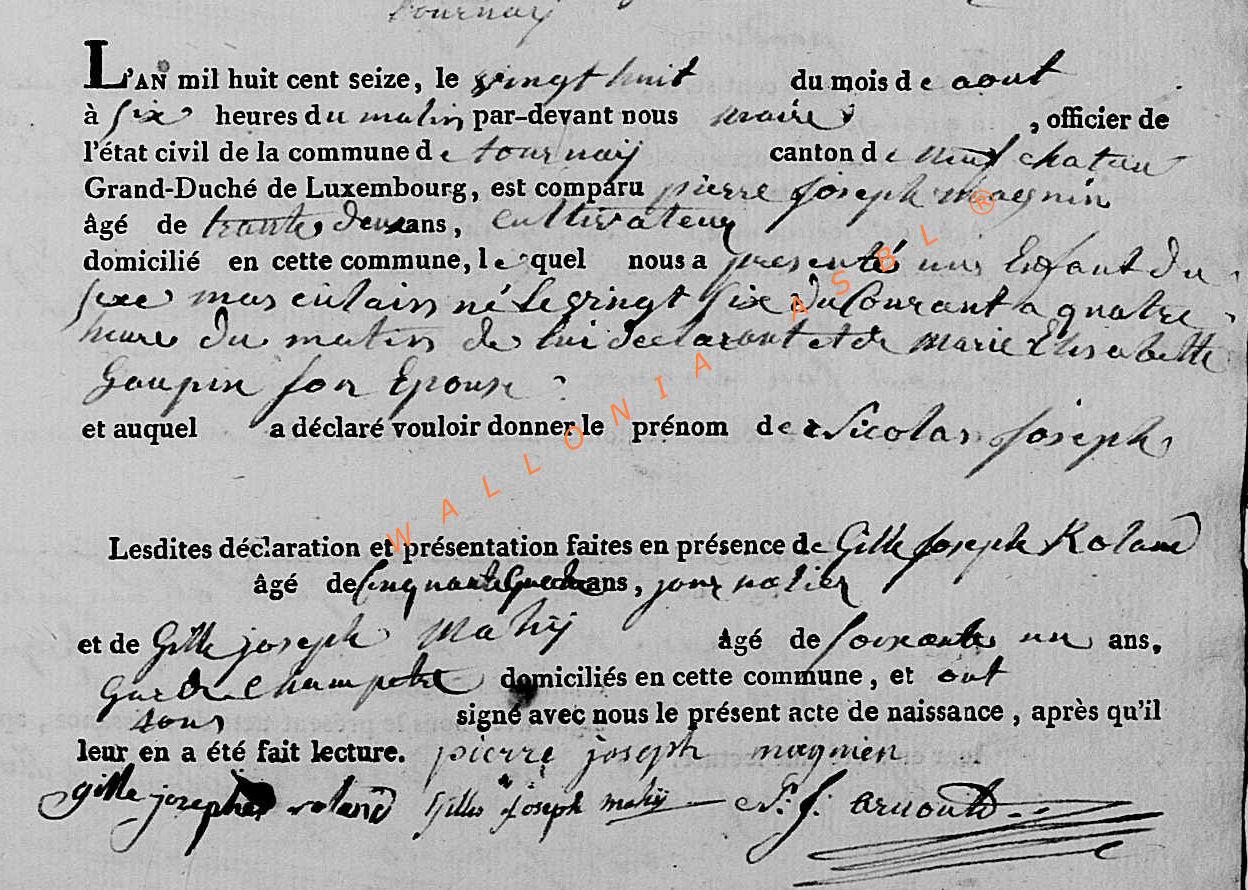 tournay
L'AN mil huit cent seize, le vingt huit du mois de aout
à six heures du matin par-devant nous maire , officier de
l'état civil de la commune de tournay canton de neufchateau
Grand-Duché de Luxembourg, est comparu pierre joseph magnin
âgé de trante deux ans, cultivateur
domicilié en cette commune, lequel nous a presenté un Enfant du
sexe mas culain né le vingt six du Courant a quatre
heure du matin de lui declarant et de marie Elisabette
Goupin son Epouse
et auquel a déclaré vouloir donner le prénom de Nicolas joseph
Lesdites déclaration et présentation faites en présence de Gille joseph Roland
âgé de Cinquante ans, journalier
et de Gille joseph Mahij âgé de soixante un ans,
Garde Champetre domiciliés en cette commune, et ont
tous signé avec nous le présent acte de naissance, après qu'il
leur en a été fait lecture. pierre joseph magnien
gille joseph roland Gilles joseph mahij N. J. arnould
WALLONIA ASBL ®